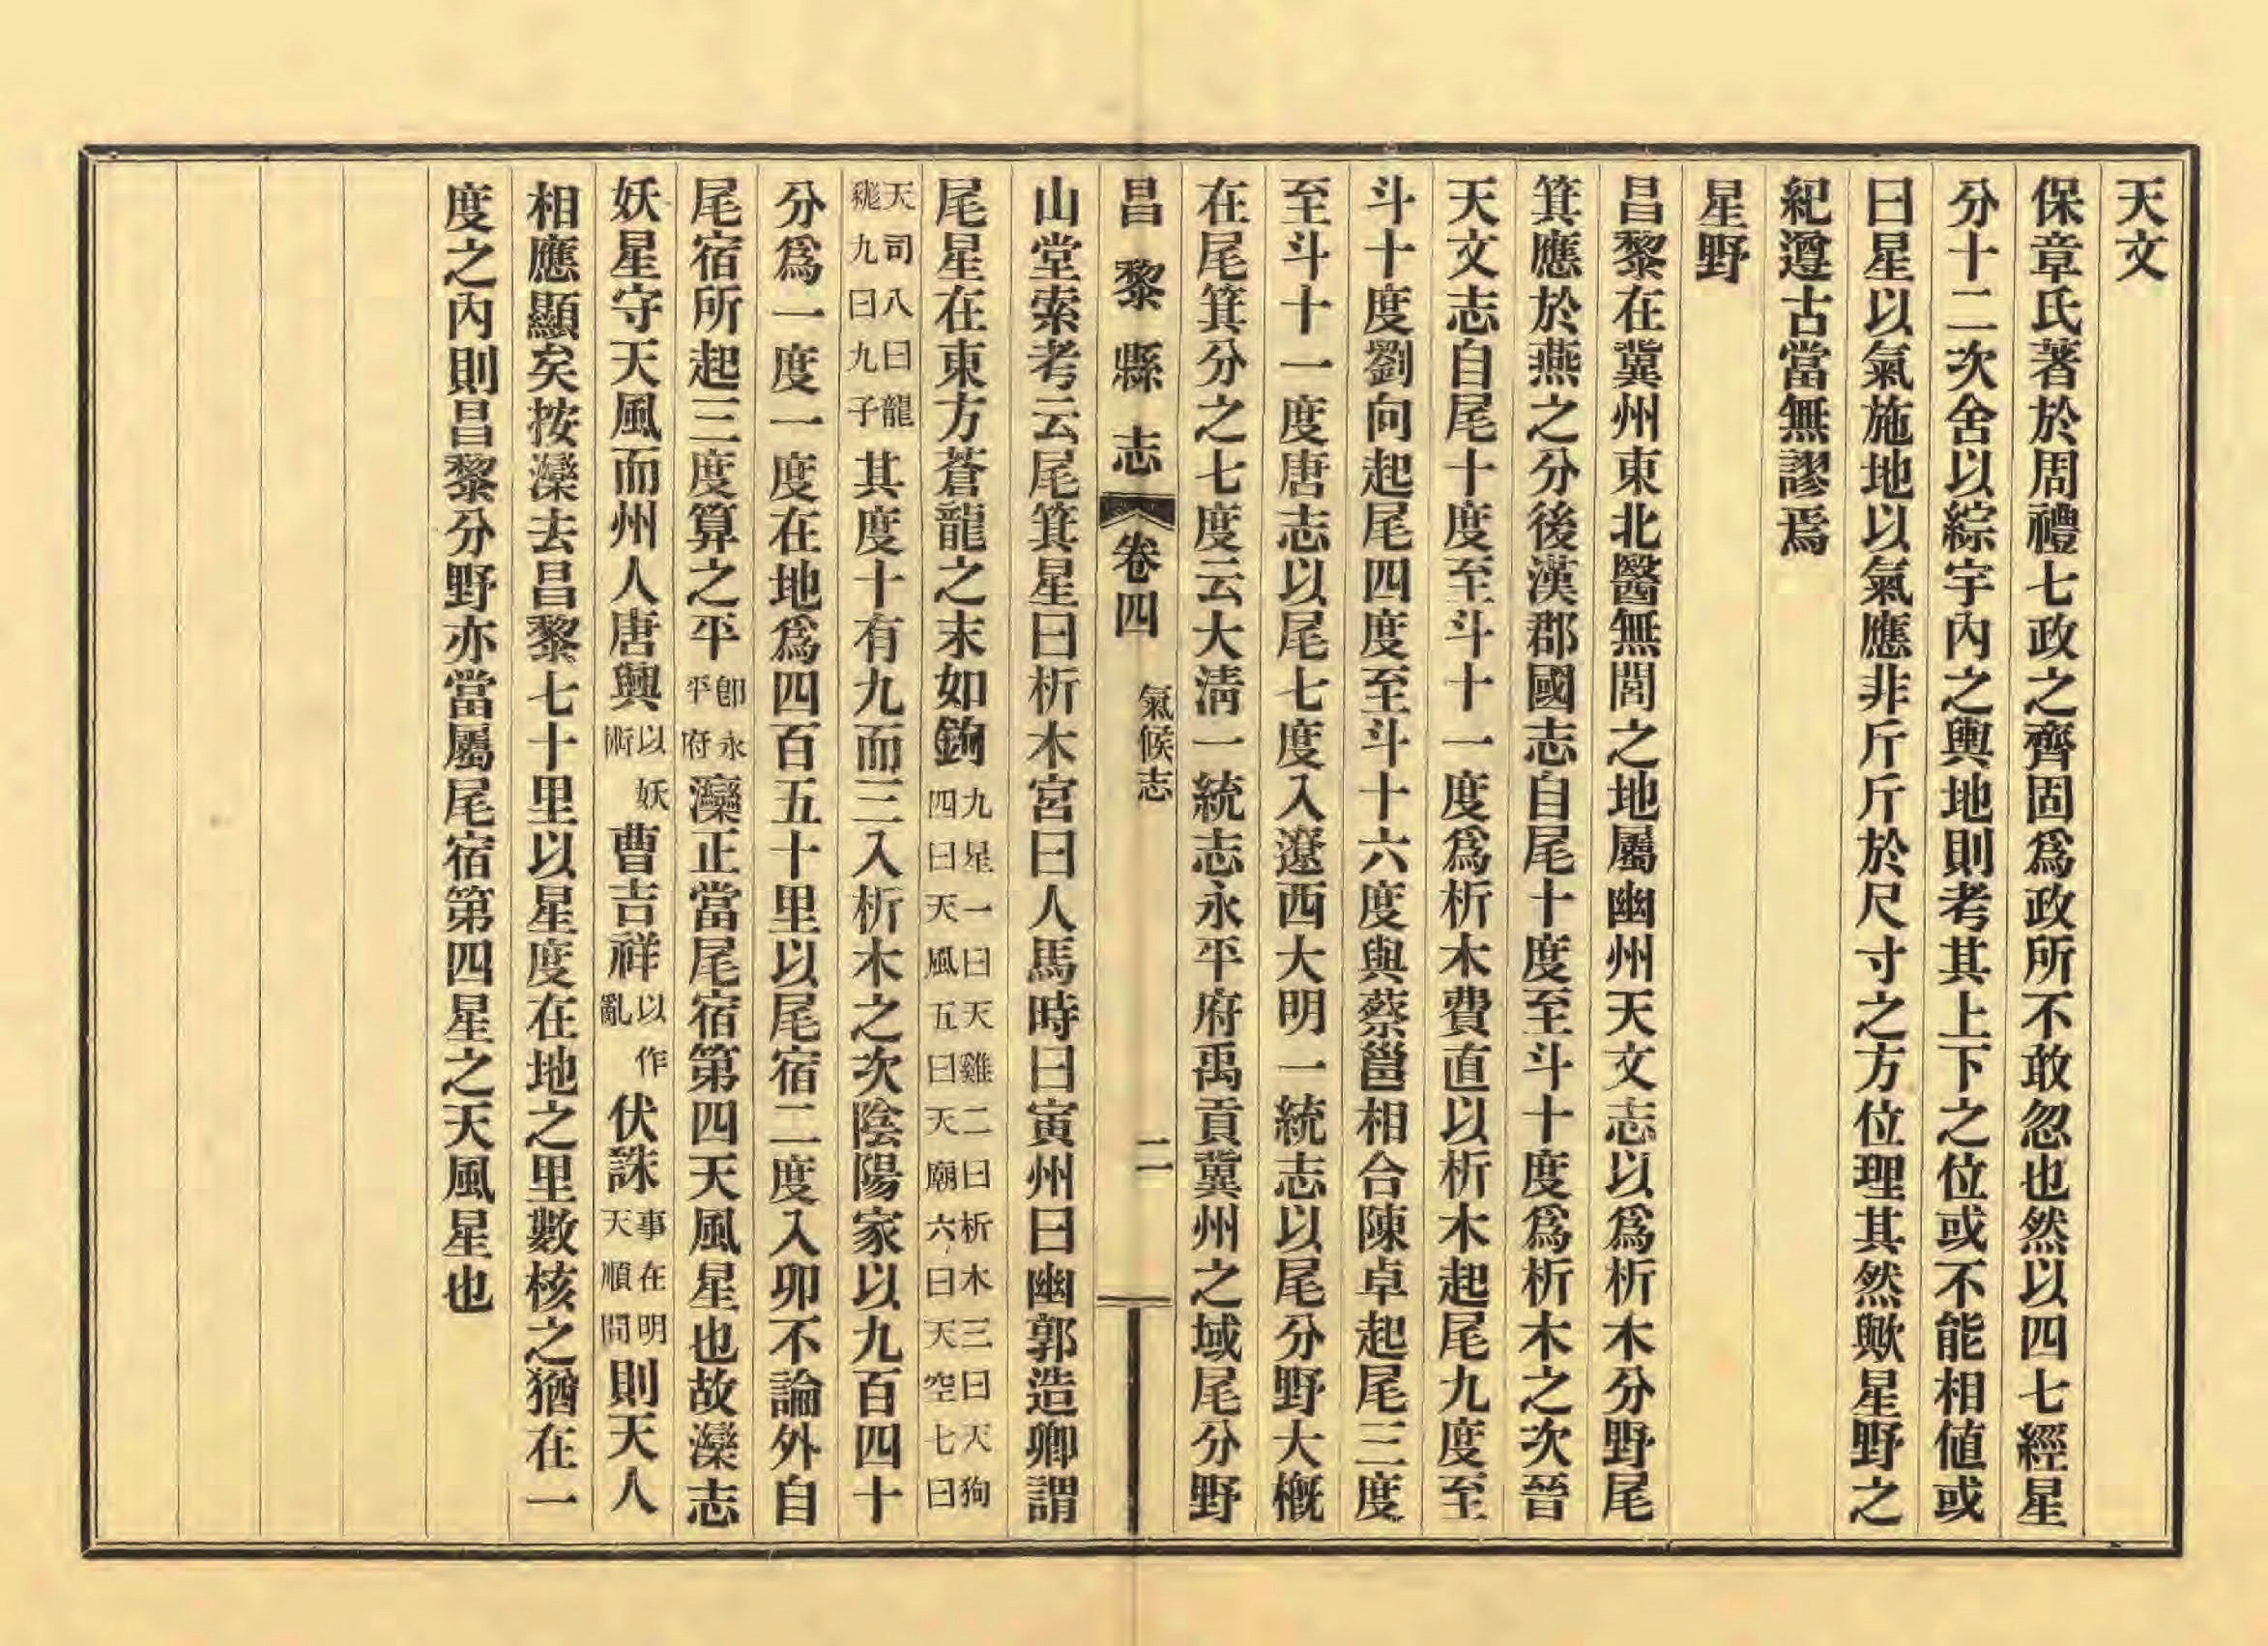 天文
保章氏著於周禮七政之齊固爲政所不敢忽也然以四七經星
分十二次舍以綜宇內之輿地則考其上下之位或不能相値或
曰星以氣施地以氣應非斤斤於尺寸之方位理其然歟星野之
紀遵古當無謬焉
星野
昌黎在冀州東北醫無閭之地屬幽州天文志以爲析木分野尾
箕應於燕之分後漢郡國志自尾十度至斗十度爲析木之次晉
天文志自尾十度至斗十一度爲析木費直以析木起尾九度至
斗十度劉向起尾四度至斗十六度與蔡邕相合陳卓起尾三度
至斗十一度唐志以尾七度入遼西大明一統志以尾分野大槪
在尾箕分之七度云大淸一統志永平府禹貢冀州之域尾分野
昌黎縣志 卷四 氣候志 二
山堂索考云尾箕星曰析木宮曰人馬時曰寅州曰幽郭造卿謂
尾星在東方蒼龍之末如鉤九星一曰天雞二曰析木三曰天狗四曰天風五曰天廟六曰天空七曰
天司八曰龍䖴九曰九子其度十有九而三入析木之次陰陽家以九百四十
分爲一度一度在地爲四百五十里以尾宿二度入卯不論外自
尾宿所起三度算之平卽永平府灤正當尾宿第四天風星也故灤志
妖星守天風而州人唐興以妖術曹吉祥以作亂伏誅事在明天順間則天人
相應顯矣按灤去昌黎七十里以星度在地之里數核之猶在一
度之內則昌黎分野亦當屬尾宿第四星之天風星也